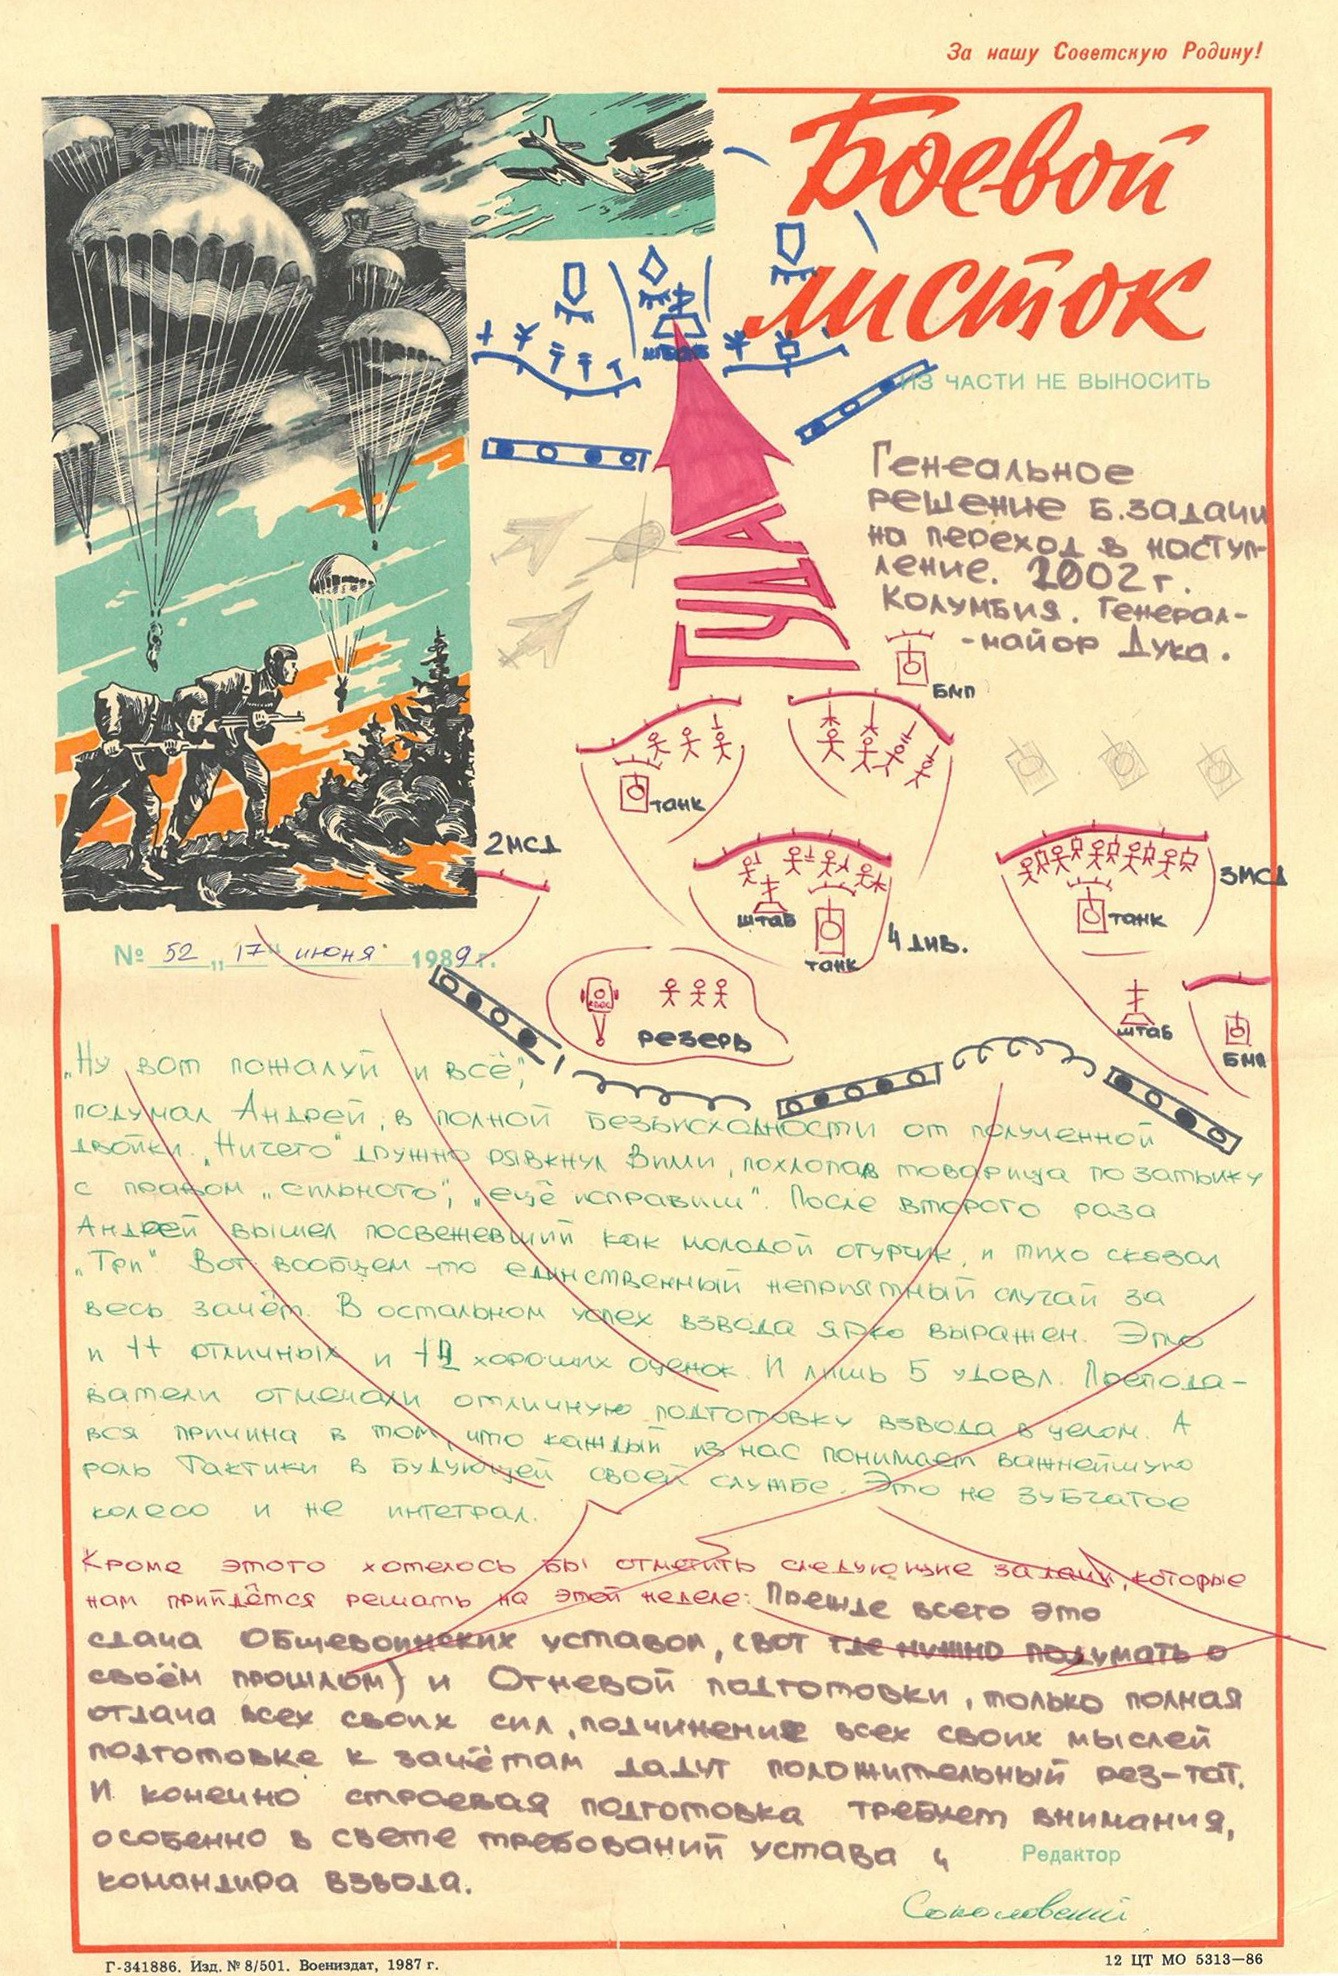 За нашу Советскую Родину!
Боевой
листок
ИЗ ЧАСТИ НЕ ВЫНОСИТЬ
штаб
Генеальное
решение Б.задачи
на переход в наступ-
ление. 2002 г.
Колумбия. Генерал-
-майор Дука.
ТУДА
БМП
танк
2МСД
штаб
танк
4 див.
3МСД
танк
штаб
БМП
резерв
№ 52 „17" июня 1989 г.
„Ну вот пожалуй и всё",
подумал Андрей, в полной безъисходности от полученной
двойки. „Ничего" дружно рявкнул Вили, похлопав товарища по затылку
с правом „сильного", „ещё исправиш". После второго раза
Андрей вышел посвежевший как молодой огурчик, и тихо сказал
„Три" Вот вообщем-то единственный неприятный случай за
весь зачёт. В остальном успех взвода ярко выражен. Это
и 11 отличных и 12 хороших оценок. И лишь 5 удовл. Препода-
ватели отмечали отличную подготовку взвода в целом. А
вся причина в том, что каждый из нас понимает важнейшую
роль Тактики в будующей своей службе. Это не зубчатое
колесо и не интеграл.
Кроме этого хотелось бы отметить следующие задачи, которые
нам прийдётся решать на этой неделе: Прежде всего это
сдача Общевоинских уставов, (вот где нужно подумать о
своём прошлом) и Огневой подготовки, только полная
отдача всех своих сил, подчинение всех своих мыслей
подготовке к зачётам дадут положительный рез-тат.
И конечно строевая подготовка требует внимания,
особенно в свете требований устава и
командира взвода.
Редактор
Соколовский
Г-341886. Изд. № 8/501. Воениздат, 1987 г.
12 ЦТ МО 5313—86